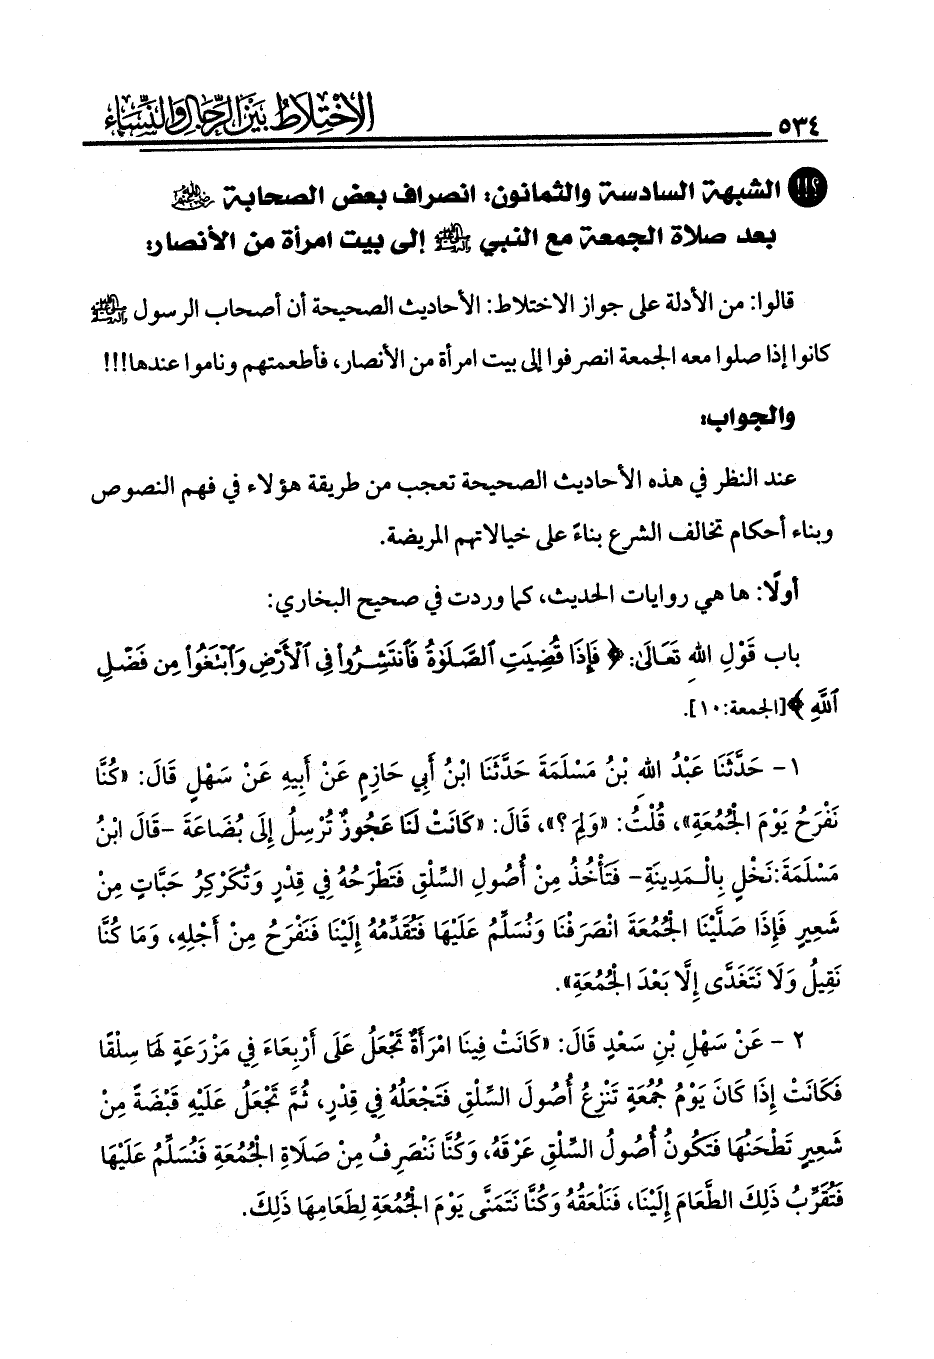 ٥٣٤ الاختلاط بين الرجال والنساء
؟!! الشبهة السادسة والثمانون: انصراف بعض الصحابة رضي الله عنهم
بعد صلاة الجمعة مع النبي ﷺ إلى بيت امرأة من الأنصار:
قالوا: من الأدلة على جواز الاختلاط: الأحاديث الصحيحة أن أصحاب الرسول ﷺ
كانوا إذا صلوا معه الجمعة انصرفوا إلى بيت امرأة من الأنصار، فأطعمتهم وناموا عندها!!!
والجواب:
عند النظر في هذه الأحاديث الصحيحة تعجب من طريقة هؤلاء في فهم النصوص
وبناء أحكام تخالف الشرع بناءً على خيالاتهم المريضة.
أولًا: ها هي روايات الحديث، كما وردت في صحيح البخاري:
باب قَوْلِ اللهِ تَعَالَى: ﴿ فَإِذَا قُضِيَتِ ٱلصَّلَوٰةُ فَٱنتَشِرُوا۟ فِي ٱلْأَرْضِ وَٱبْتَغُوا۟ مِن فَضْلِ
ٱللَّهِ ﴾ [الجمعة:١٠].
١- حَدَّثَنَا عَبْدُ اللهِ بْنُ مَسْلَمَةَ حَدَّثَنَا ابْنُ أَبِي حَازِمٍ عَنْ أَبِيهِ عَنْ سَهْلٍ قَالَ: «كُنَّا
نَفْرَحُ يَوْمَ الْجُمُعَةِ»، قُلْتُ: «وَلِمَ؟»، قَالَ: «كَانَتْ لَنَا عَجُوزٌ تُرْسِلُ إِلَى بُضَاعَةَ -قَالَ ابْنُ
مَسْلَمَةَ:نَخْلٍ بِالْـمَدِينَةِ- فَتَأْخُذُ مِنْ أُصُولِ السِّلْقِ فَتَطْرَحُهُ فِي قِدْرٍ وَتُكَرْكِرُ حَبَّاتٍ مِنْ
شَعِيرٍ فَإِذَا صَلَّيْنَا الْجُمُعَةَ انْصَرَفْنَا وَنُسَلِّمُ عَلَيْهَا فَتُقَدِّمُهُ إِلَيْنَا فَنَفْرَحُ مِنْ أَجْلِهِ، وَمَا كُنَّا
نَقِيلُ وَلَا نَتَغَدَّى إِلَّا بَعْدَ الْجُمُعَةِ».
٢ - عَنْ سَهْلِ بْنِ سَعْدٍ قَالَ: «كَانَتْ فِينَا امْرَأَةٌ تَجْعَلُ عَلَى أَرْبِعَاءَ فِي مَزْرَعَةٍ لَهَا سِلْقًا
فَكَانَتْ إِذَا كَانَ يَوْمُ جُمُعَةٍ تَنْزِعُ أُصُولَ السِّلْقِ فَتَجْعَلُهُ فِي قِدْرٍ، ثُمَّ تَجْعَلُ عَلَيْهِ قَبْضَةً مِنْ
شَعِيرٍ تَطْحَنُهَا فَتَكُونُ أُصُولُ السِّلْقِ عَرْقَهُ، وَكُنَّا نَنْصَرِفُ مِنْ صَلَاةِ الْجُمُعَةِ فَنُسَلِّمُ عَلَيْهَا
فَتُقَرِّبُ ذَلِكَ الطَّعَامَ إِلَيْنَا، فَنَلْعَقُهُ وَكُنَّا نَتَمَنَّى يَوْمَ الْجُمُعَةِ لِطَعَامِهَا ذَلِكَ.